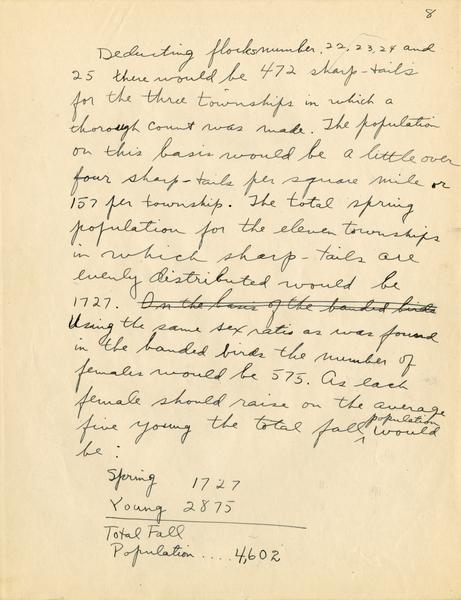 8
Deducting flocks number 22, 23, 24 and
25 there would be 472 sharp-tails
for the three townships in which a
thorough count was made. The population
on this basis would be a little over
four sharp-tails per square mile or
157 per township. The total spring
population for the eleven townships
in which sharp-tails are
evenly distributed would be
1727. On the basis of the banded birds
Using the same sex ratio as was found
in the banded birds the number of
females would be 575. As each
female should raise on the average
five young the total fall population would
be:
Spring 1727
Young 2875
Total Fall
Population .... 4,602